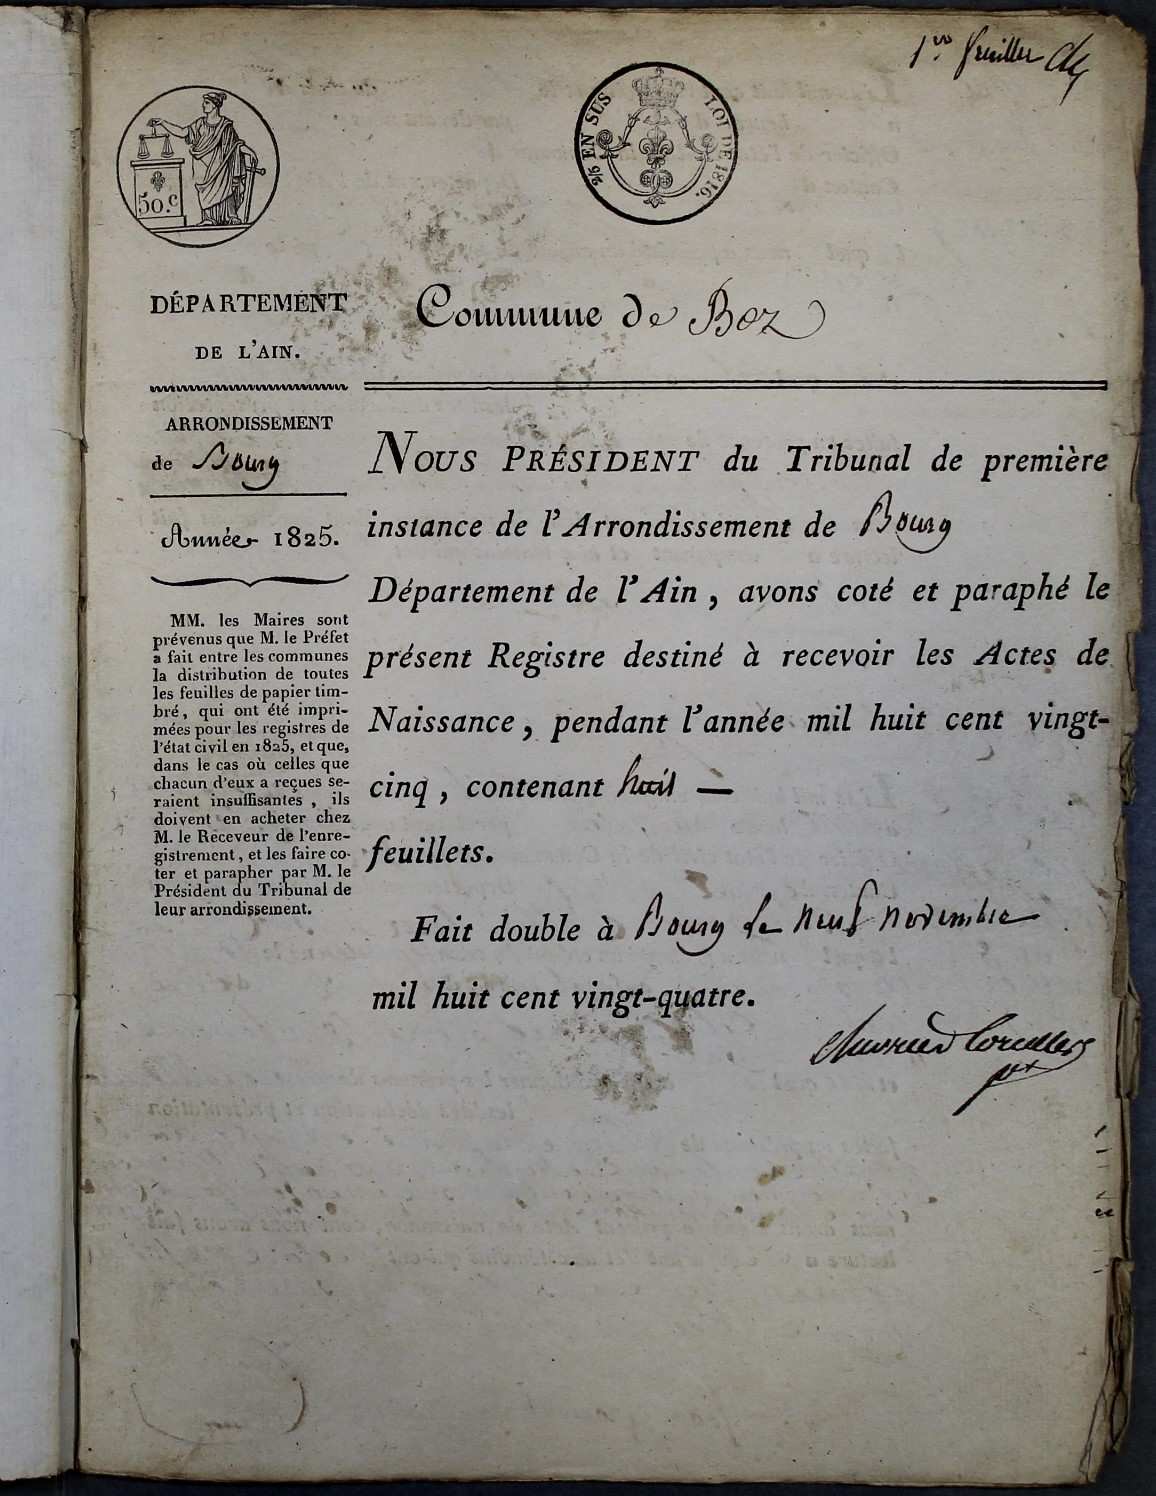 1er feuillet
50.c
2/6 EN SUS
LOI DE 1816.
DÉPARTEMENT
DE L'AIN.
Commune de Boz
ARRONDISSEMENT
de Bourg
Année 1825.
MM. les Maires sont
prévenus que M. le Préfet
a fait entre les communes
la distribution de toutes
les feuilles de papier tim-
bré, qui ont été impri-
mées pour les registres de
l'état civil en 1825, et que,
dans le cas où celles que
chacun d'eux a reçues se-
raient insuffisantes, ils
doivent en acheter chez
M. le Receveur de l'enre-
gistrement, et les faire co-
ter et parapher par M. le
Président du Tribunal de
leur arrondissement.
NOUS PRÉSIDENT du Tribunal de première
instance de l'Arrondissement de Bourg
Département de l'Ain, avons coté et paraphé le
présent Registre destiné à recevoir les Actes de
Naissance, pendant l'année mil huit cent vingt-
cinq, contenant huit —
feuillets.
Fait double à Bourg le neuf novembre
mil huit cent vingt-quatre.